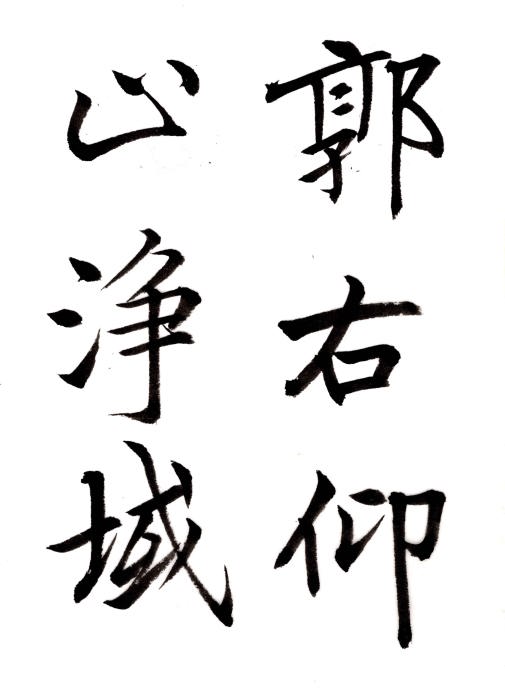 郭右仰
心淨域